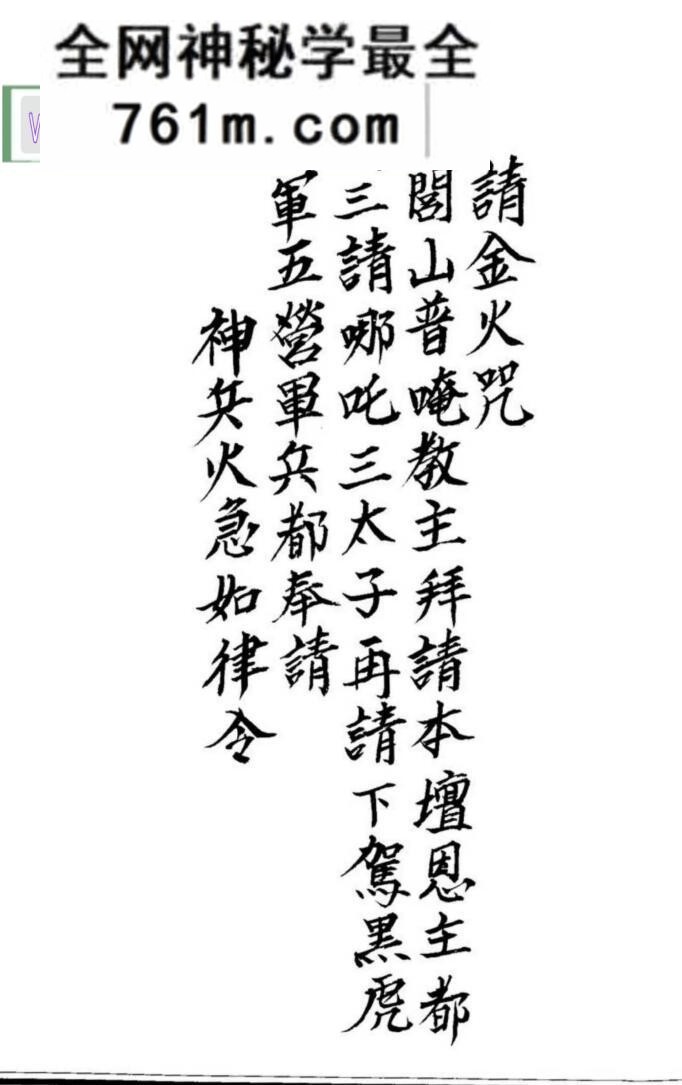 全网神秘学最全
761m.com
W
請金火咒
閭山普唵教主拜請本壇恩主都
三請哪吒三太子再請下駕黑虎
軍五營軍兵都奉請
神兵火急如律令